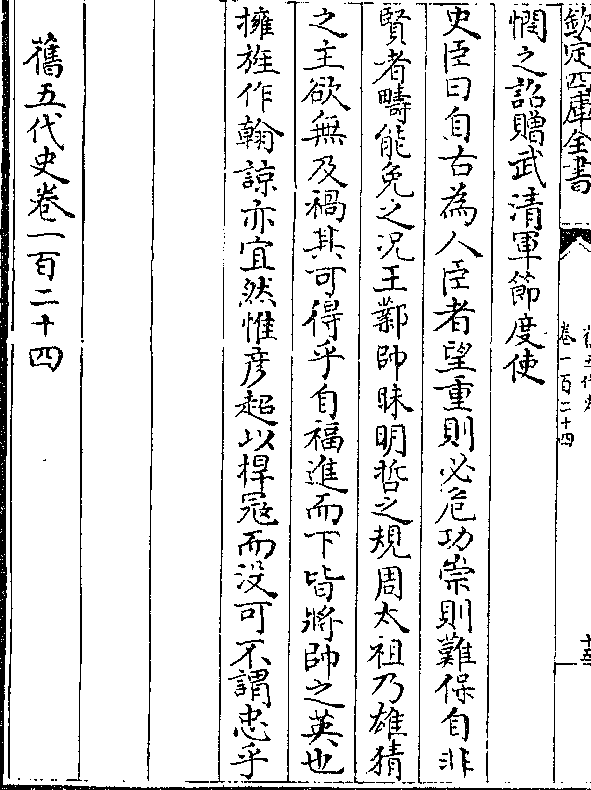 欽定四庫全書
舊五代史
卷一百二十四
憫之詔贈武清軍節度使
史臣曰自古為人臣者望重則必危功崇則難保自非
賢者疇能免之况王鄴帥昧明哲之規周太祖乃雄猜
之主欲無及禍其可得乎自福進而下皆將帥之英也
擁旄作翰諒亦宜然惟彦超以捍冦而没可不謂忠乎
舊五代史卷一百二十四